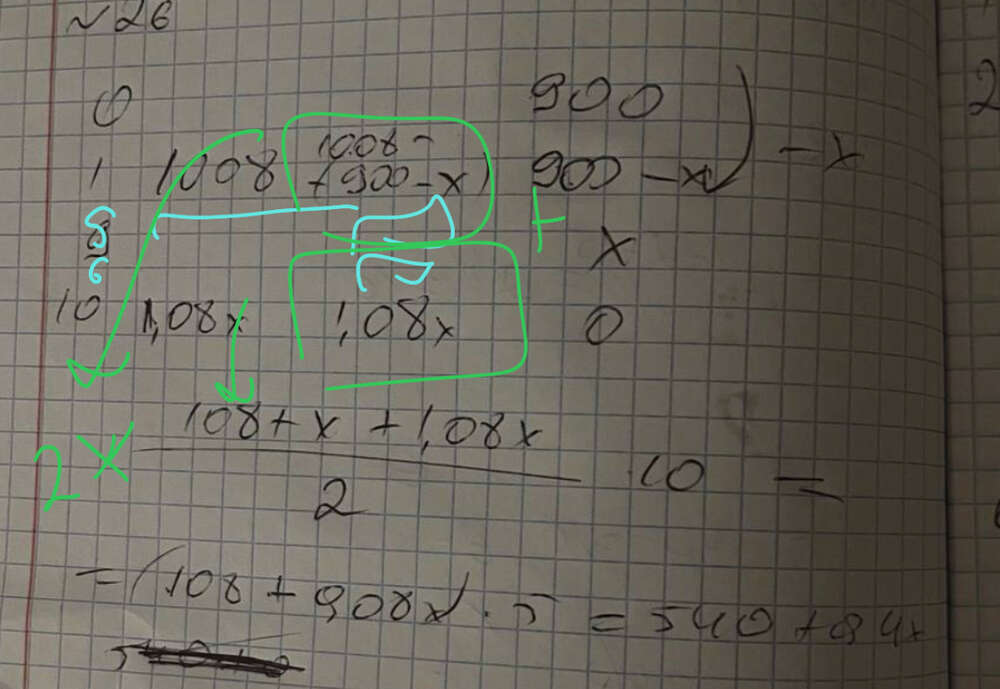 ~ 26
0 900
1 1008 1008 - (900-x) 900 - x ) - x
x
10 1,08x 1,08x 0
2x 108 + x + 1,08x / 2 10 =
= (108 + 908x) · 5 = 540 + 94x
2